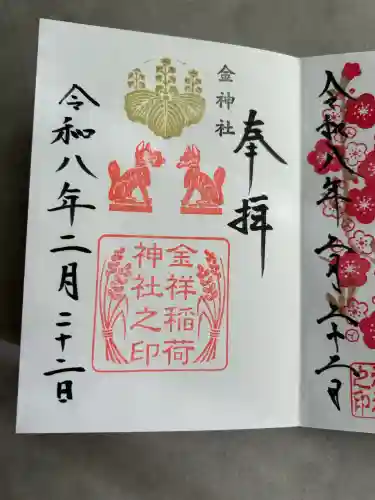 令和八年
奉拝
金神社
金祥稲荷
神社之印
令和八年二月二十二日